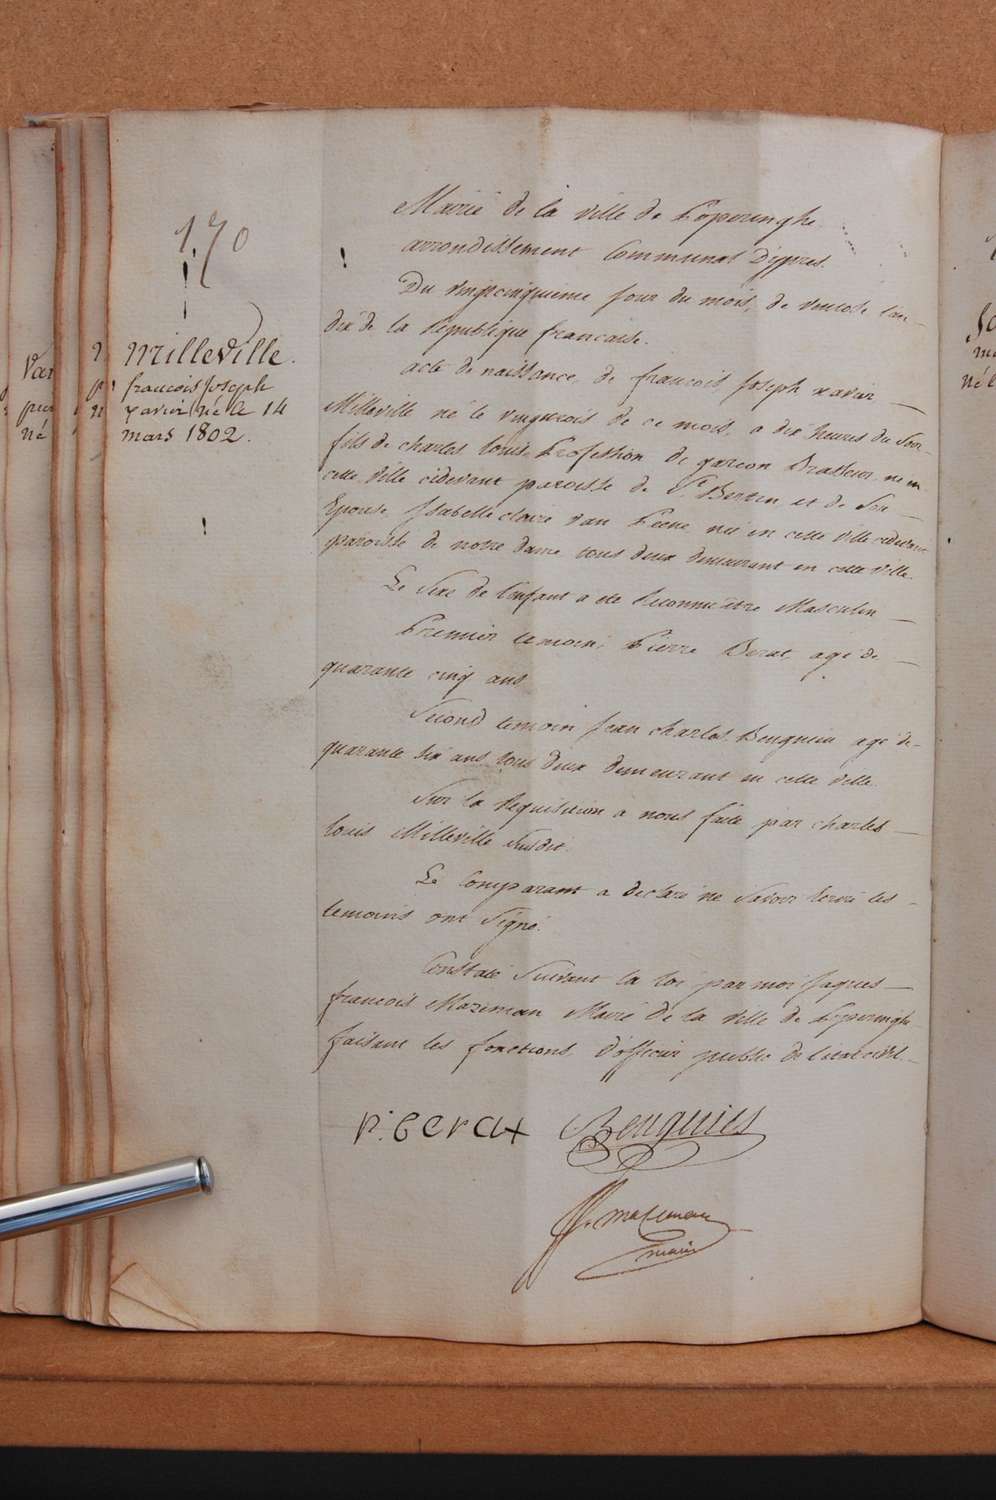 170
Milleville.
francois Joseph
xavier né le 14
mars 1802.
Mairie de la ville de Poperinghe
arrondissement Communal D'ypres.
Du vingtcinquieme jour du mois, de ventose l'an
dix de la republique francaise.
acte de naissance, de francois Joseph xavier
Milleville né le vingttrois de ce mois, a dix heures du Soir
fils de charles louis, Profession de garcon Brasseur, né en
cette ville cidevant paroisse de St Bertin, et de Son
Epouse, Isabelle claire van Peene née en cette ville cidevant
paroisse de notre dame tous deux demeurant en cette ville.
Le Sexe de l'enfant a été Reconnu être Masculin
Premier temoin, Pierre Berat, agé de
quarante cinq ans
Second temoin Jean charles Beuguin agé de
quarante six ans tous deux demeurant en cette ville.
Sur la Requisition a nous faite par charles
louis Milleville Susdit.
Le Comparant a declaré ne Savoir Ecrire les
temoins ont Signé.
Constaté Suivant la loi par moi Jaques
francois Mazeman Maire de la ville de Poperinghe
faisant les fonctions d'officier public de l'etat civil
P. berat Beuguies
J.f. mazeman
maire
Van
né
né l